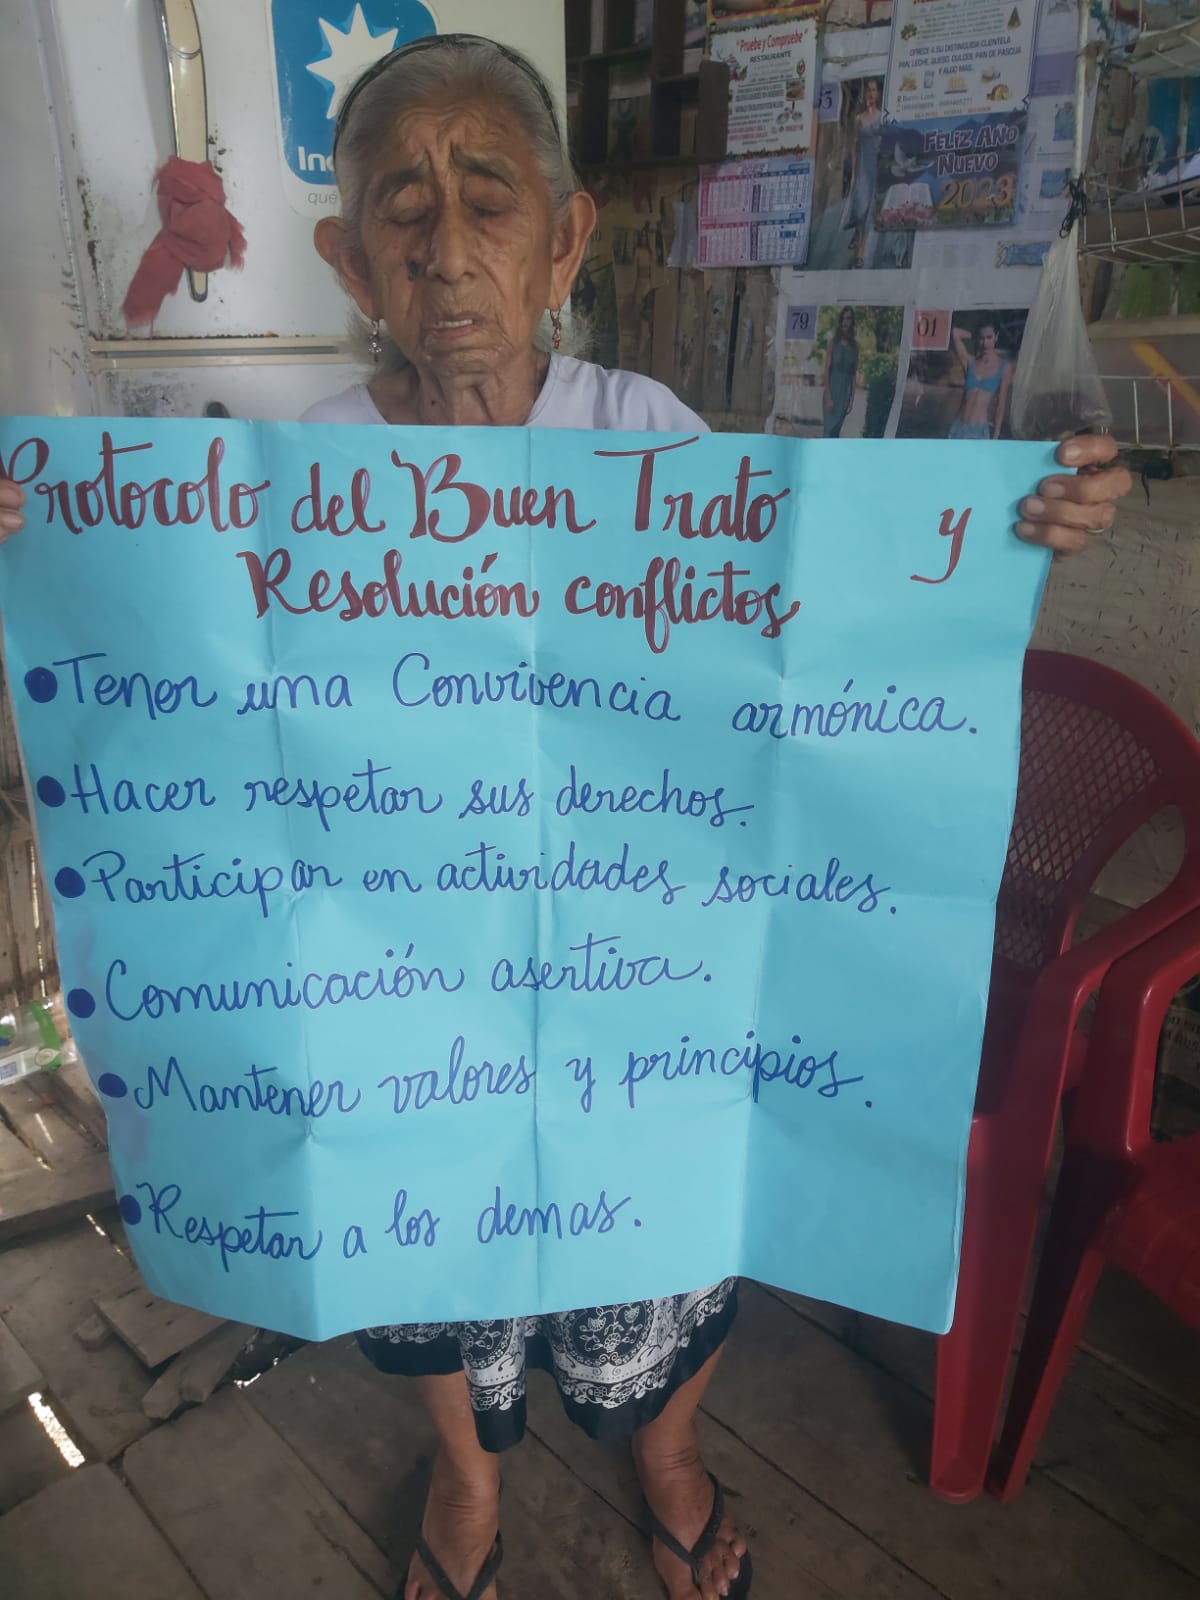 In
que
" Pruebe y Compruebe "
RESTAURANTE
OFRECE A SU DISTINGUIDA CLIENTELA
PAN, LECHE, QUESO, DULCES, PAN DE PASCUA
Y ALGO MAS.
FELIZ AÑO
NUEVO
2023
79
01
Protocolo del Buen Trato y
Resolución conflictos
• Tener una Convivencia armónica.
• Hacer respetar sus derechos.
• Participar en actividades sociales.
• Comunicación asertiva.
• Mantener valores y principios.
• Respetar a los demas.